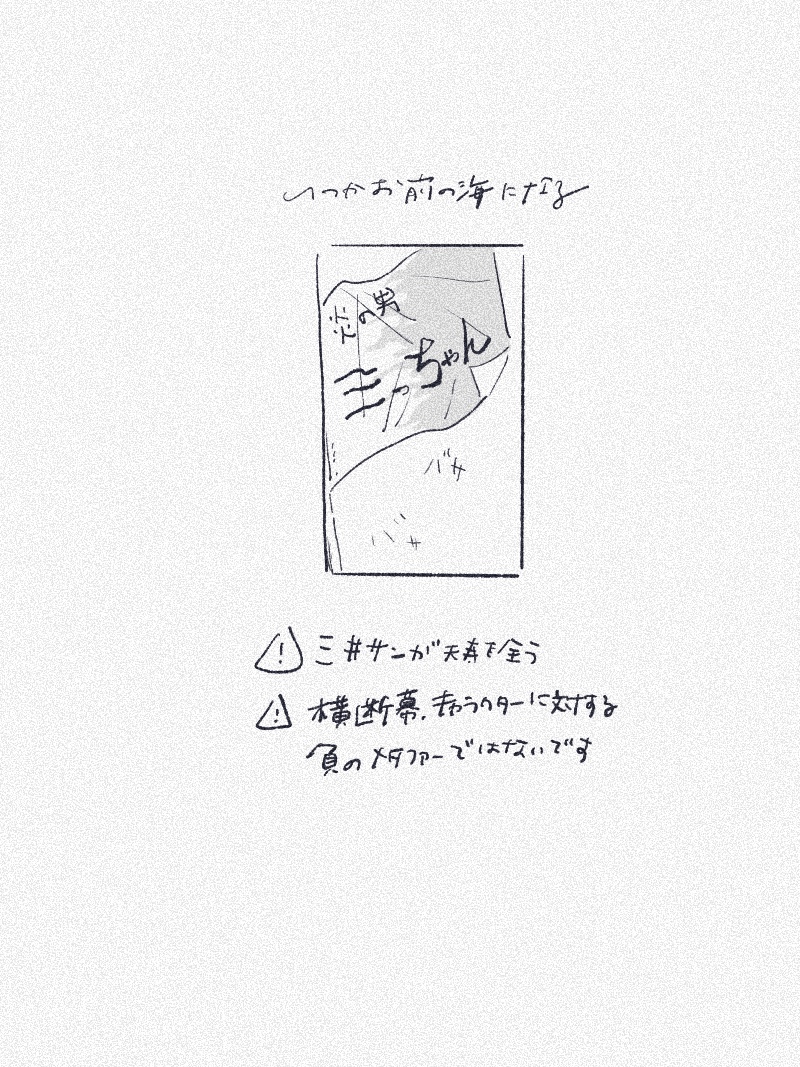 いつかお前の海になる
炎の男
三っちゃん
バサ
バサ
三井サンが天寿を全う
横断幕、キャラクターに対する
負のメタファーではないです